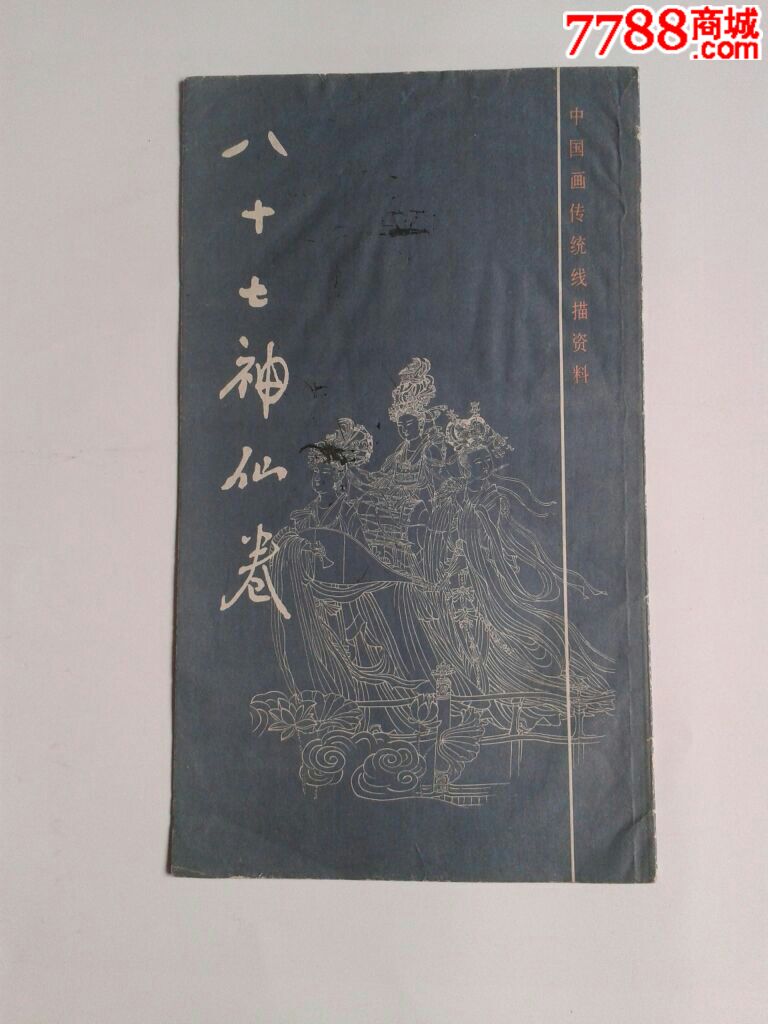 7788商城
.com
中国画传统线描资料
八十七神仙卷